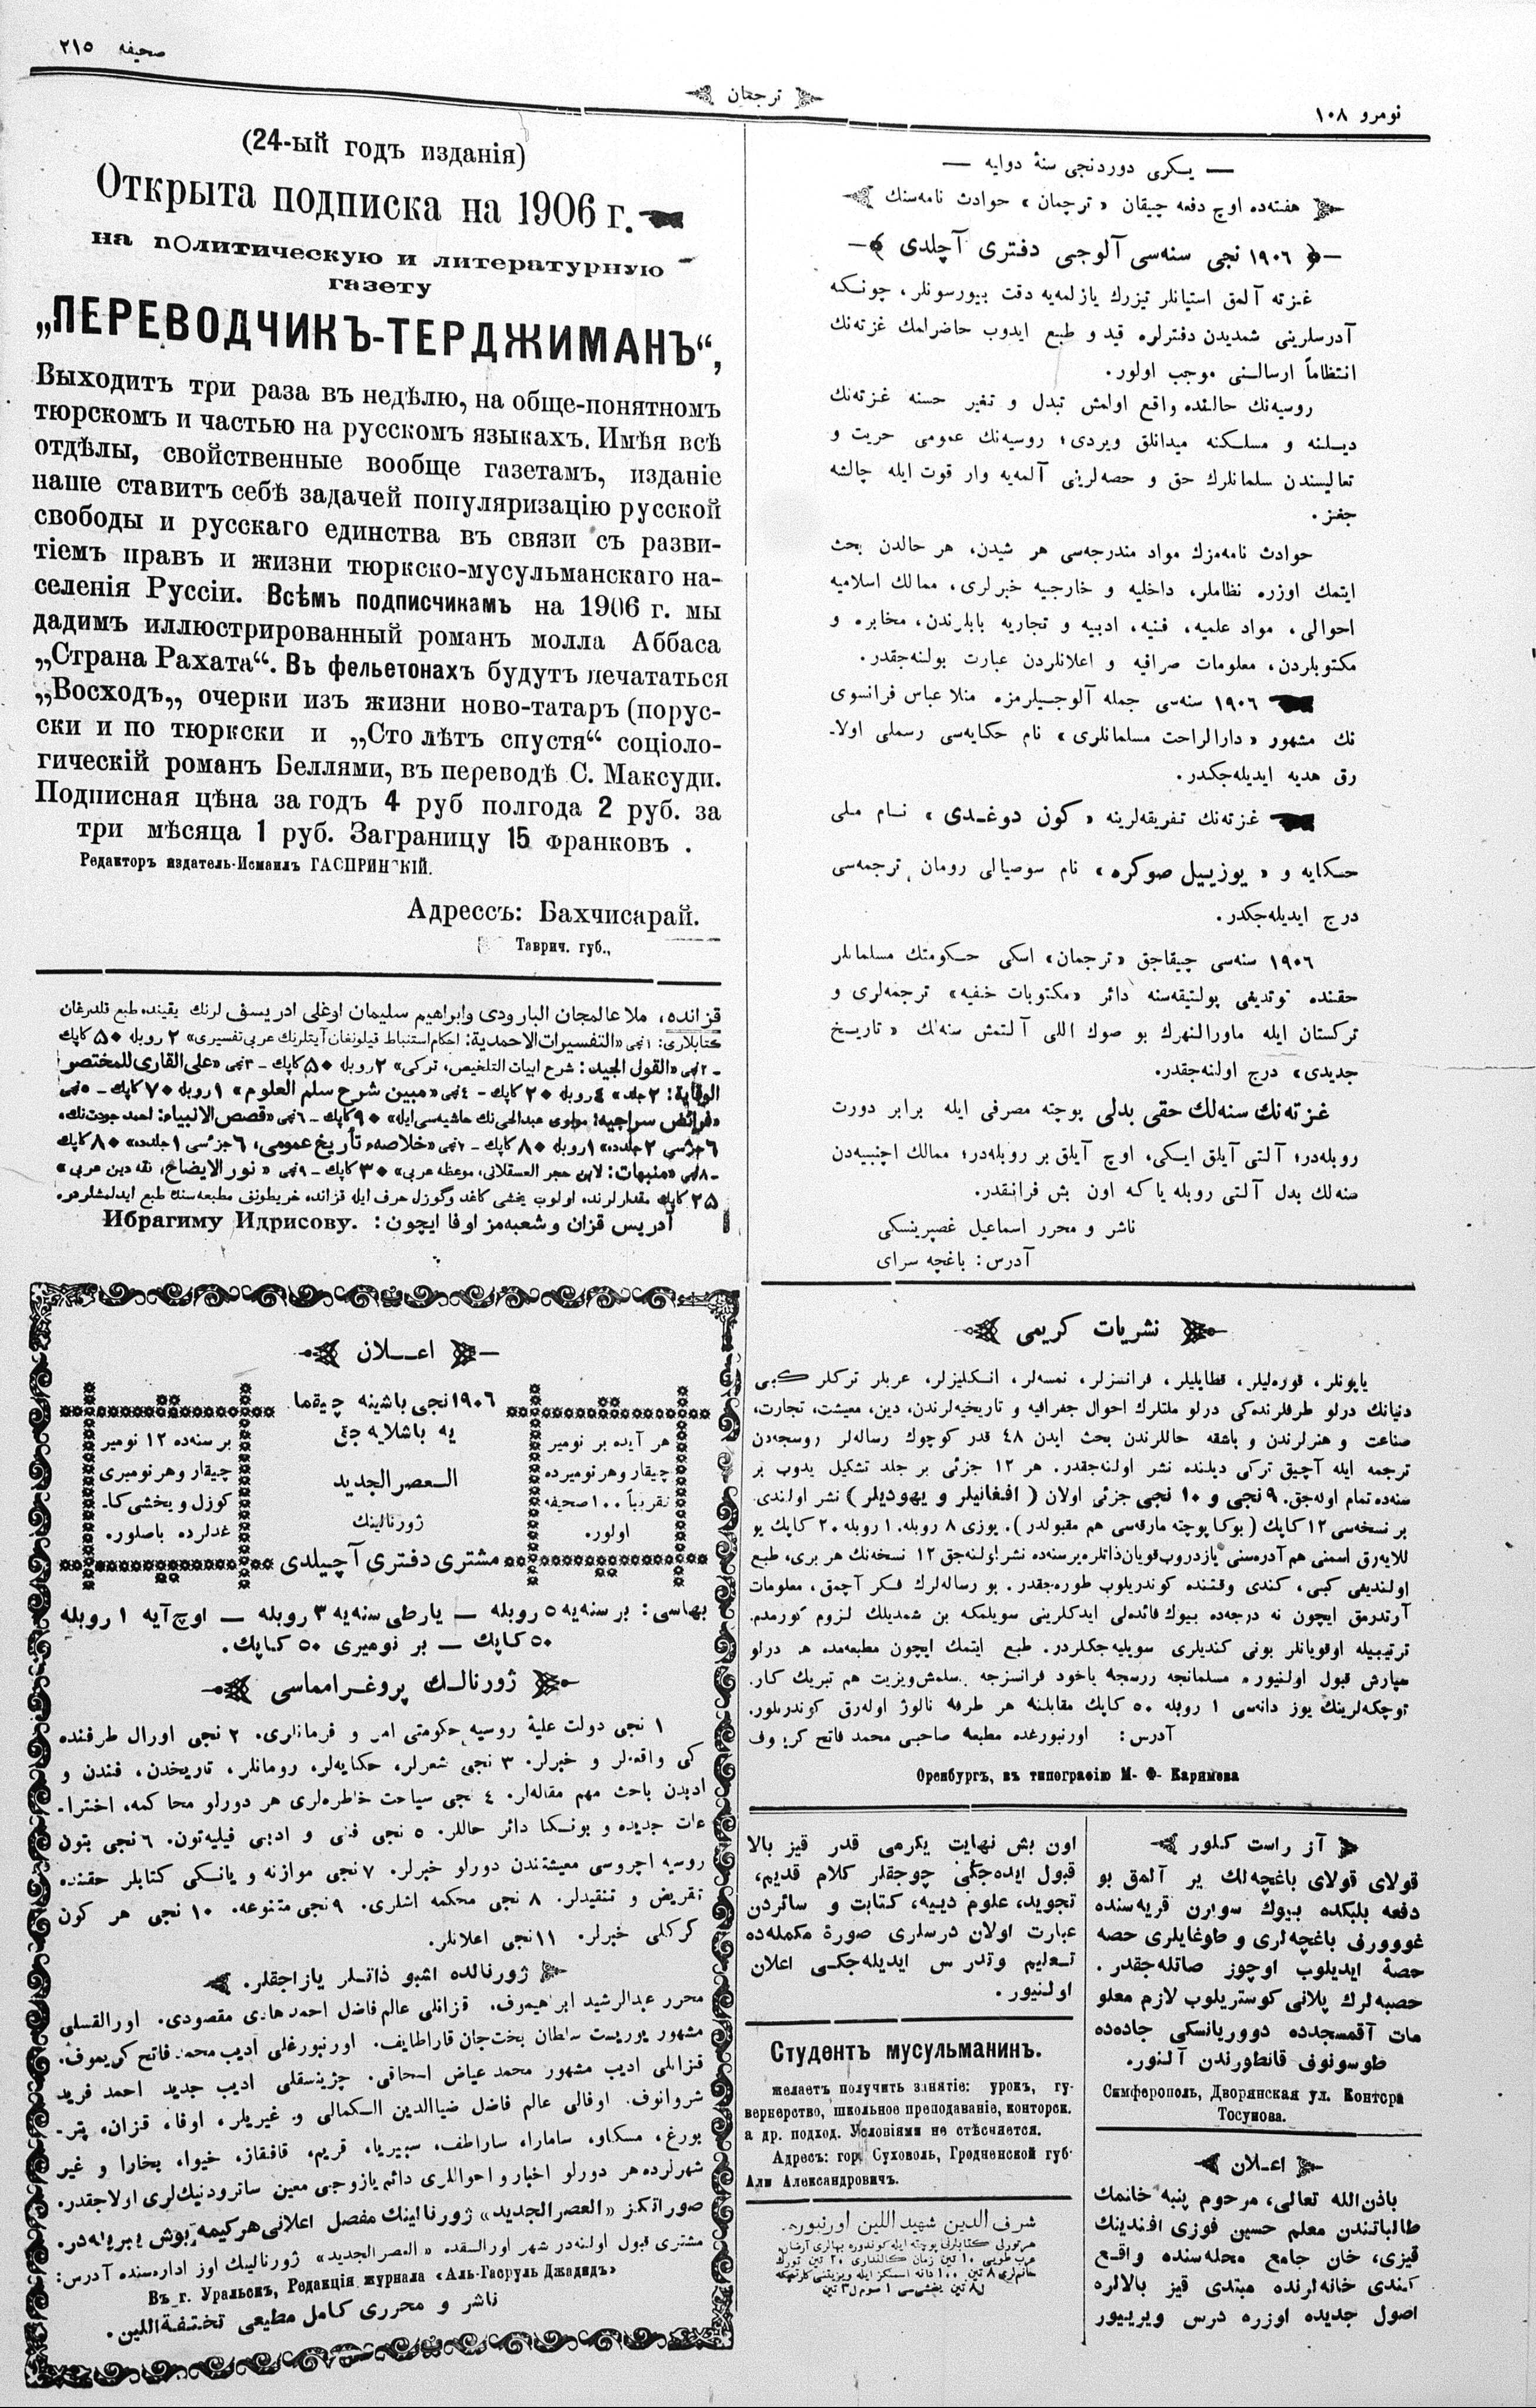 نومرو ۱۰۸
ترجمان
صحیفه ۲۱۵
— یکرمی دوردنجی سنۀ دوایه —
هفته‌ده اوچ دفعه چیقان «ترجمان» حوادث نامه‌سنك
۱۹۰۶ نجی سنه‌سی آلوجی دفتری آچلدی
غزته آلمق استیانلر تیزرك یازلمه‌یه دقت بیورسونلر، چونکه
آدرسلرینی شمدیدن دفترلره قید و طبع ایدوب حاضرلمك غزته‌نك
انتظاماً ارسالـنی موجب اولور.
روسیه‌نك حالنده واقع اولمش تبدل و تغیر حسنه غزته‌نك
دیـلنه و مسلـکنه میدانلق ویردی؛ روسیه‌نك عمومی حریت و
تعالیسندن سلمانلرك حق و حصه‌لرینی آلمه‌یه وار قوت ایله چالشه
جغز.
حوادث نامه‌مزك مواد مندرجه‌سی هر شیدن، هر حالدن بحث
ایتمك اوزره نظاملر، داخلیه و خارجیه خبرلری، ممالك اسلامیه
احوالی، مواد علمیه، فنیه، ادبیه و تجاریه بابلرندن، مخابره و
مکتوبلردن، معلومات صرافیه و اعلانلردن عبارت بولنه‌جقدر.
۱۹۰۶ سنه‌سی جمله آلوجیلرمزه منلا عباس فرانسوی
نك مشهور «دارالراحت مسلمانلری» نام حکایه‌سی رسملی اولا-
رق هدیه ایدیله‌جکدر.
غزته‌نك تفریقه‌لرینه «کون دوغدی» نام ملی
حکایه و «یوزییل صوکره» نام سوصیالی رومان ترجمه‌سی
درج ایدیله‌جکدر.
۱۹۰۶ سنه‌سی چیقاجق «ترجمان» اسکی حکومتك مسلمانلر
حقنده توتدیغی پولتیقه‌سنه دائر «مکتوبات خفیه» ترجمه‌لری و
ترکستان ایله ماورالنهرك بو صوك اللی آلتمش سنه‌لك «تاریخ
جدیدی» درج اولنه‌جقدر.
غزته‌نك سنه‌لك حقی بدلی پوچته مصرفی ایله برابر دورت
روبله‌در؛ آلتی آیلق ایکی، اوچ آیلق بر روبله‌در؛ ممالك اجنبیه‌دن
سنه‌لك بدل آلتی روبله یا که اون بش فرانقدر.
ناشر و محرر اسماعیل غصپرینسکی
آدرس: باغچه سرای
(24-ый годъ изданія)
Открыта подписка на 1906 г.
на политическую и литературную
газету
„ПЕРЕВОДЧИКЪ-ТЕРДЖИМАНЪ“,
Выходитъ три раза въ недѣлю, на обще-понятномъ
тюрскомъ и частью на русскомъ языкахъ. Имѣя всѣ
отдѣлы, свойственные вообще газетамъ, изданіе
наше ставитъ себѣ задачей популяризацію русской
свободы и русскаго единства въ связи съ разви-
тіемъ правъ и жизни тюркско-мусульманскаго на-
селенія Руссіи. Всѣмъ подписчикамъ на 1906 г. мы
дадимъ иллюстрированный романъ молла Аббаса
„Страна Рахата“. Въ фельетонахъ будутъ печататься
„Восходъ„, очерки изъ жизни ново-татаръ (порус-
ски и по тюркски и „Сто лѣтъ спустя“ соціоло-
гическій романъ Беллями, въ переводѣ С. Максуди.
Подписная цѣна за годъ 4 руб полгода 2 руб. за
три мѣсяца 1 руб. Заграницу 15 франковъ .
Редакторъ издатель-Исмаилъ ГАСПРИНСКІЙ.
Адрессъ: Бахчисарай.
Таврич. губ.,
قزانده، ملا عالمجان البارودی وابراهیم سلیمان اوغلی ادریسف لرنك یقینده طبع قلدرغان
کتابلاری: ۱نچی «التفسیرات الاحمدیة: احکام استنباط قیلونغان آیتلرنك عربی تفسیری» ۲ روبله ۵۰ کاپك
-۲نچی «القول الجید: شرح ابیات التلخیص، ترکی» ۲ روبله ۵۰ کاپك - ۳نچی «علی القاری للمختصر
الوقایة: ۲ جلد» ٤ روبله ۲۰ کاپك - ٤نچی «مبین شرح سلم العلوم» ۱ روبله ۷۰ کاپك - ۵نچی
«فرائض سراجیه: مولوی عبدالحی نك حاشیه‌سی ایله» ۹۰ کاپك - ۶نچی «قصص الانبیاء: احمد جودت نك،
۶ جزئسی ۲ جلدده» ۱ روبله ۸۰ کاپك - ۷نچی «خلاصۀ تأریخ عمومی، ۶ جزئسی ۱ جلدده» ۸۰ کاپك
-۸نچی «منبهات: لابن حجر العسقلانی، موعظه عربی» ۳۰ کاپك - ۹نچی «نور الایضاح، فقه دین عربی»
۲۵ کاپك مقدارلرنده اولوب یخشی کاغد وگوزل حرف ایله قزانده خریطونف مطبعه‌سنده طبع ایدلمشلردر.
آدریس قزان و شعبه‌مز اوفا ایچون: Ибрагиму Идрисову.
نشریات کریمی
یاپونلر، قوره‌لیلر، قطایلیلر، فرانسزلر، نمسه‌لر، انکلیزلر، عربلر ترکلر کبی
دنیانك درلو طرفلرنده‌کی درلو ملتلرك احوال جغرافیه و تاریخیه‌لرندن، دین، معیشت، تجارت،
صناعت و هنرلرندن و باشقه حاللرندن بحث ایدن ٤۸ قدر کوچوك رساله‌لر روسجه‌دن
ترجمه ایله آچیق ترکی دیلنده نشر اولنه‌جقدر. هر ۱۲ جزئی بر جلد تشکیل یدوب بر
سنه‌ده تمام اوله‌جق. ۹ نجی و ۱۰ نجی جزئی اولان (افغانیلر و یهودیلر) نشر اولندی.
بر نسخه‌سی ۱۲ کاپك (بوکا پوچته مارقه‌سی هم مقبولدر). یوزی ۸ روبله. ۱ روبله ۲۰ کاپك یو
للایه‌رق اسمنی هم آدره‌سنی یازدروب قویان ذاتلره بر سنه‌ده نشر اولنه‌جق ۱۲ نسخه‌نك هر بری، طبع
اولندیغی کبی، کندی وقتنده کوندریلوب طوره‌جقدر. بو رساله‌لرك فکر آچمق، معلومات
آرتدرمق ایچون نه درجه‌ده بیوك فائده‌لی ایدکلرینی سویلمکه بن شمدیلك لزوم کورمدم.
ترتیبیله اوقویانلر بونی کندیلری سویلیه‌جکلردر. طبع ایتمك ایچون مطبعه‌مده هر درلو
سپارش قبول اولنیور. مسلمانجه روسجه یاخود فرانسزجه یازلمش ویزیت هم تبریك کار-
توچکه‌لرینك یوز دانه‌سی ۱ روبله ۵۰ کاپك مقابلنه هر طرفه نالوژ اوله‌رق کوندریلور.
آدرس: اورنبورغده مطبعه صاحبی محمد فاتح کریموف
Оренбургъ, въ типографію М- Ф- Каримова
اعــلان
۱۹۰۶ نجی باشینه چیقما
یه باشلایه جق
الـعصر الجدید
ژورنالینك
مشتری دفتری آچیلدی
هر آیده بر نومیر
چیقار وهر نومیرده
تقریباً ۱۰۰ صحیفه
اولور.
بر سنه‌ده ۱۲ نومیر
چیقار وهر نومیری
کوزل و یخشی کا-
غدلرده باصلور.
بهاسی: بر سنه‌یه ۵ روبله — یارطی سنه‌یه ۳ روبله — اوچ آیه ۱ روبله
۵۰ کاپك — بر نومیری ۵۰ کاپك.
ژورنالـك پروغـرامماسی
۱ نجی دولت علیۀ روسیه حکومتی امر و فرمانلری. ۲ نجی اورال طرفنده
کی واقعه‌لر و خبرلر. ۳ نجی شعرلر، حکایه‌لر، رومانلر، تاریخدن، فندن و
ادبدن باحث مهم مقاله‌لر. ٤ نجی سیاحت خاطره‌لری هر دورلو محاکمه، اخترا-
عات جدیده و بونـکا دائر حاللر. ۵ نجی فنی و ادبی فیلیه‌تون. ۶ نجی بتون
روسیه اچروسی معیشتندن دورلو خبرلر. ۷ نجی موازنه و یانـکی کتابلر حقنده
تقریض و تنقیدلر. ۸ نجی محکمه اشلری. ۹ نجی متنوعه. ۱۰ نجی هر کون
کرکلی خبرلر. ۱۱ نجی اعلانلر.
ژورنالده اشبو ذاتـلر یازاجقلر.
محرر عبدالرشید ابراهیموف. قزانلی عالم فاضل احمد هادی مقصودی. اورالقسلی
مشهور یوریست سلطان بخت‌جان قاراطایف. اورنبورغلی ادیب محمد فاتح کریموف.
قزانلی ادیب مشهور محمد عیاض اسحاقی. چزینسقلی ادیب جدید احمد فرید
شروانوف. اوفالی عالم فاضل ضیاالدین الـکمالی و غیریلر، اوفا، قزان، پتر-
بورغ، مسکاو، سامارا، ساراطف، سیبیریا، قریم، قافقاز، خیوا، بخارا و غیر
شهرلرده هر دورلو اخبار و احواللری دائم یازوجی معین ساترودنیك‌لری اولاجقدر.
صوراتکز «العصر الجدید» ژورنالینك مفصل اعلانی هر کیمه بوش یبریله‌در.
مشتری قبول اولنه‌در شهر اورالسقده «العصر الجدید» ژورنالینك اوز اداره‌سنده آدرس:
Въ г. Уральскъ, Редакція журнала «Аль-Гасруль Джадидъ»
ناشر و محرری کامل مطیعی تحفـةاللین.
آز راست کـلور
قولای قولای باغچه‌لك یر آلمق بو
دفعه بلبکده بیوك سورن قریه‌سنده
غووورنی باغچه‌لری و طوغایلری حصه
حصۀ ایدیلوب اوچوز صاتله‌جقدر.
حصبه‌لرك پلانی کوستریلوب لازم معلو
مات آقمسجدده دووریانسکی جاده‌ده
طوسونوف قانطورندن آلنور.
Симферополь, Дворянская ул. Контора
Тосунова.
اعـلان
باذن الله تعالی، مرحوم پنبه خانمك
طالباتندن معلم حسین فوزی افندینك
قیزی، خان جامع محله‌سنده واقـع
کندی خانه‌لرنده مبتدی قیز بالالره
اصول جدیده اوزره درس ویرییور
اون بش نهایت یکرمی قدر قیز بالا
قبول ایده‌جکنی چوجقلر کلام قدیم،
تجوید، علوم دینیه، کتابت و سائردن
عبارت اولان درسلری صورۀ مکمله‌ده
تـعلیم وتدرس ایدیله‌جکـی اعلان
اولـنیور.
Студентъ мусульманинъ.
желаетъ получить занятіе: урокъ, гу-
вернерство, школьное преподаваніе, конторск.
а др. подход. Условіями не стѣсняется.
Адресъ: гор. Суховоль, Гродненской губ-
Али Александровичъ.
شرف الدین شهید اللین اورنبورد.